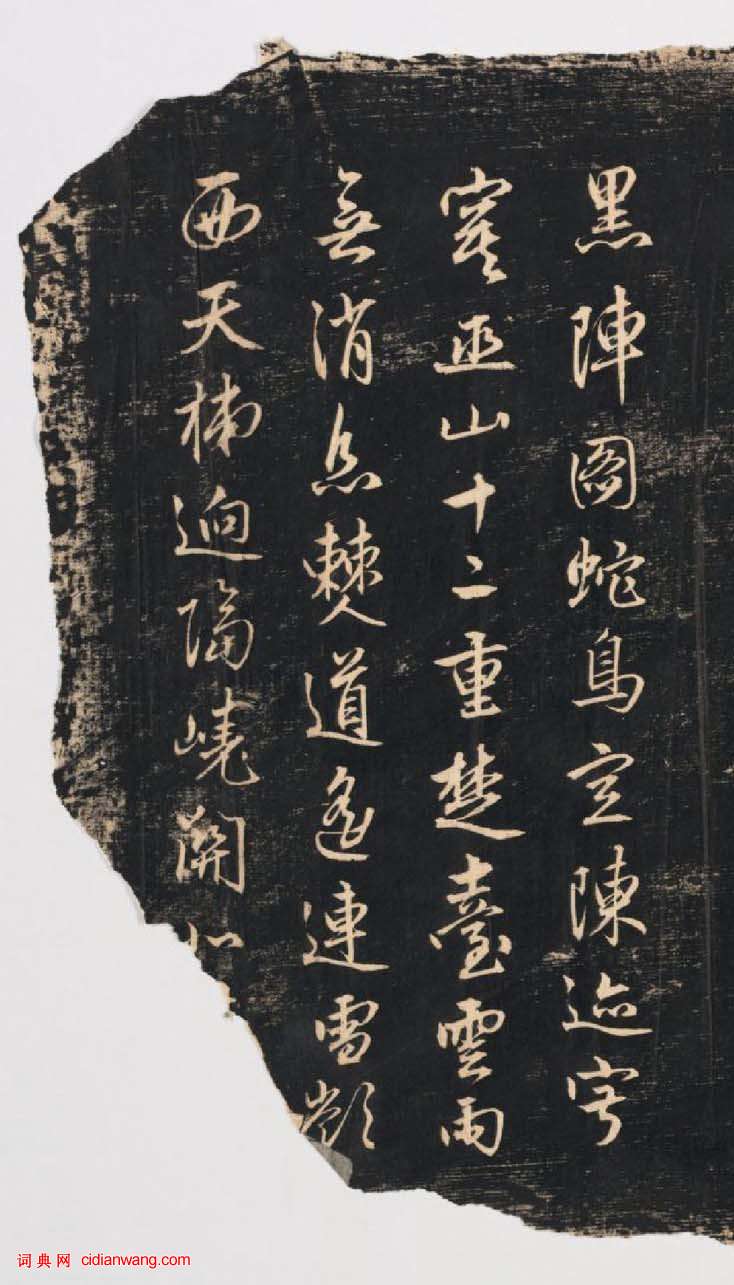 黑陣圖蛇鳥空陳迹寂
寞巫山十二重楚臺雲雨
無消息僰人道遙連雪嶺
西天梯迥隔嶢關
词典网 cidianwang.com